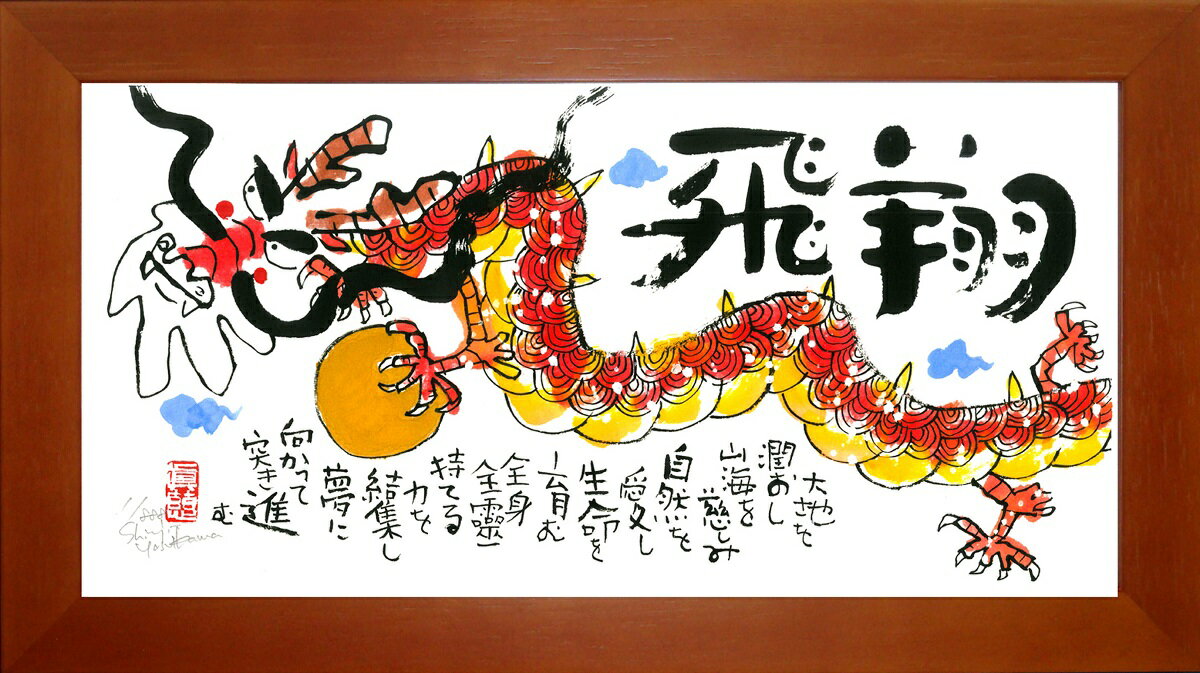 飛翔
大地を
潤おし
山海を
慈しみ
自然を
愛し
生命を
育む
全身
全靈
持てる
力を
結集し
夢に
向かって
突き進
む
Shinji
Yoshikawa